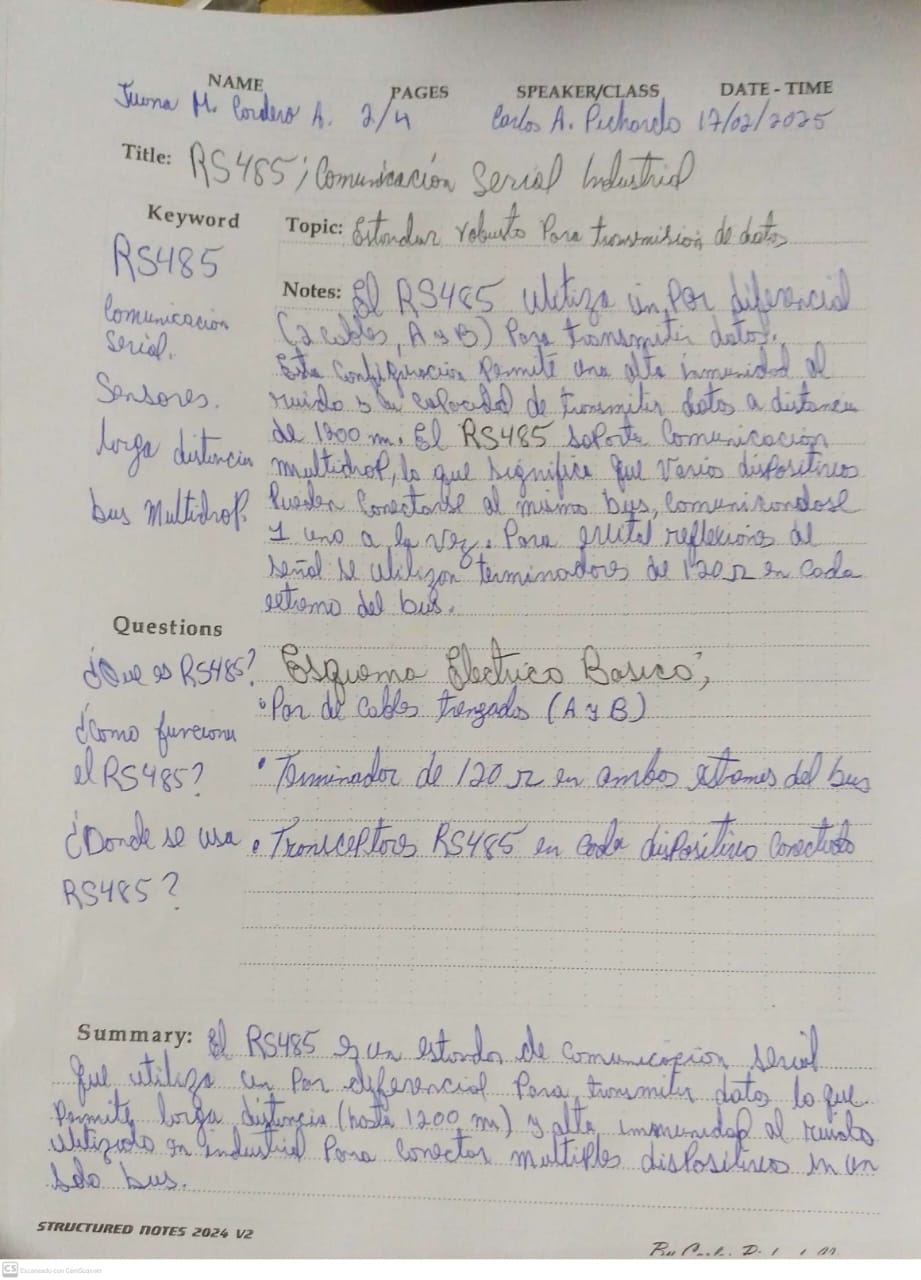 NAME PAGES SPEAKER/CLASS DATE - TIME
Juana M. Cordero A. 2/4 Carlos A. Pichardo 17/02/2025
Title: RS485; Comunicación Serial Industrial
Keyword
Topic: Estandar robusto Para transmisión de datos
RS485
Comunicacion
Serial.
Sensores.
larga distancia
bus Multidrop.
Notes: El RS485 utiliza un Par diferencial
(2 cables, A y B) Para transmitir datos.
Esta Configuracion Permite una alta inmunidad al
ruido y la capacidad de transmitir datos a distancia
de 1200 m. El RS485 soporta Comunicacion
multidrop, lo que significa que varios dispositivos
Pueden Conectarse al mismo bus, comunicandose
1 uno a la vez. Para evitar reflexiones de
señal se utilizan terminadores de 120 Ω en cada
extremo del bus.
Questions
¿Que es RS485?
¿Como funciona
el RS485?
¿Donde se usa
RS485?
Esquema Electrico Basico;
• Par de Cables trenzados (A y B)
• Terminador de 120 Ω en ambos extremos del bus
• Transceptores RS485 en cada dispositivo conectado
Summary: El RS485 es un estandar de comunicacion serial
que utiliza un Par diferencial Para transmitir datos lo que
Permite larga distancia (hasta 1200 m) y alta inmunidad al ruido
utilizado en industrial Para conectar multiples dispositivos en un
solo bus.
STRUCTURED NOTES 2024 V2
CS Escaneado con CamScanner